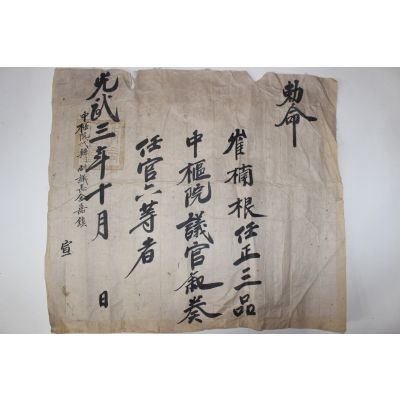 勅命
崔楠根任正三品
中樞院議官敍奏
任官六等者
光武三年十月 日
中樞院代辦副議長金嘉鎮 宣